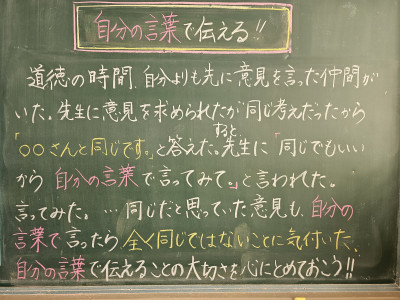 自分の言葉で伝える!!
道徳の時間、自分よりも先に意見を言った仲間が
いた。先生に意見を求められたが同じ考えだったから
「○○さんと同じです。」と答えた。すると、先生に「同じでもいい
から自分の言葉で言ってみて。」と言われた。
言ってみた。…同じだと思っていた意見も、自分の
言葉で言ったら全く同じではないことに気付いた。
自分の言葉で伝えることの大切さを心にとめておこう!!